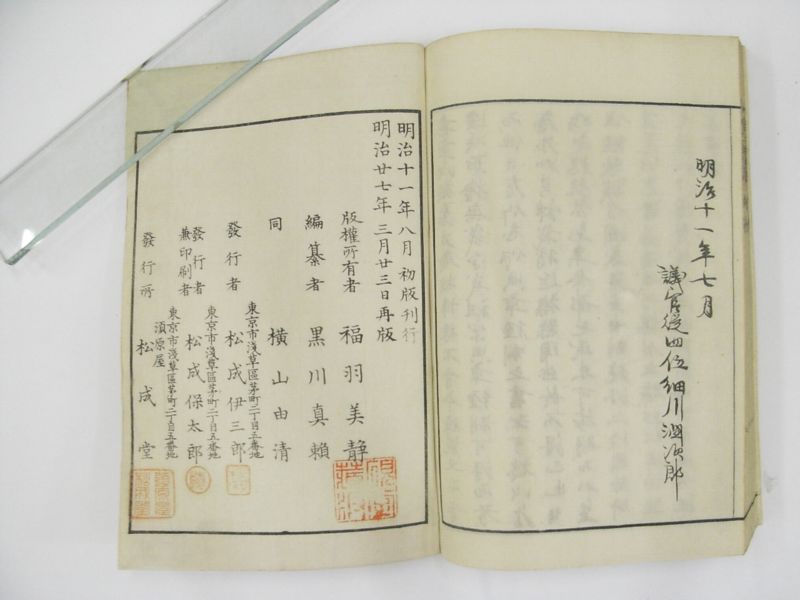 明治十一年七月
議官從四位細川潤次郎
明治十一年八月初版刊行
明治廿七年三月廿三日再版
版權所有者 福羽美靜
編纂者 黒川真頼
同 横山由清
東京市淺草區茅町二丁目五番地
發行者 松成伊三郎
東京市淺草區茅町二丁目五番地
發行者兼印刷者 松成保太郎
東京市淺草區茅町二丁目五番地
須原屋
發行所 松成堂